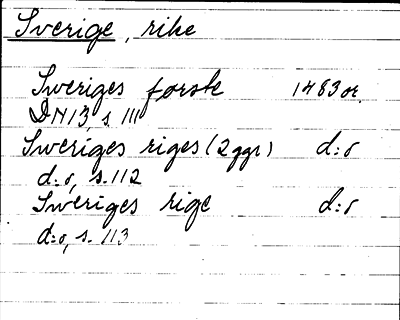 Sverige, rike
Sweriges første 1483 or.
DN13, s. 111
Sweriges riges (2 ggr) d:o
d:o, s. 112
Sweriges rige d:o
d:o, s. 113